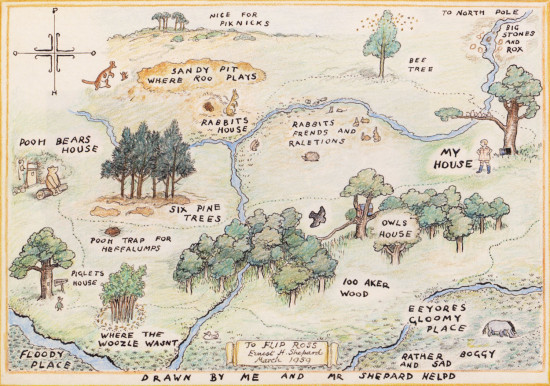 NICE FOR
PIKNICKS
TO NORTH POLE
BIG
STONES
AND
ROX
BEE
TREE
SANDY PIT
WHERE ROO PLAYS
RABBITS
HOUSE
RABBITS
FRENDS AND
RALETIONS
POOH BEARS
HOUSE
MY
HOUSE
SIX PINE
TREES
OWLS
HOUSE
POOH TRAP FOR
HEFFALUMPS
PIGLETS
HOUSE
100 AKER
WOOD
EEYORES
GLOOMY
PLACE
WHERE THE
WOOZLE WASNT
FLOODY
PLACE
TO FLIP ROSS
Ernest H. Shepard
March 1959
RATHER BOGGY
AND SAD
DRAWN BY ME AND MR SHEPARD HELPD